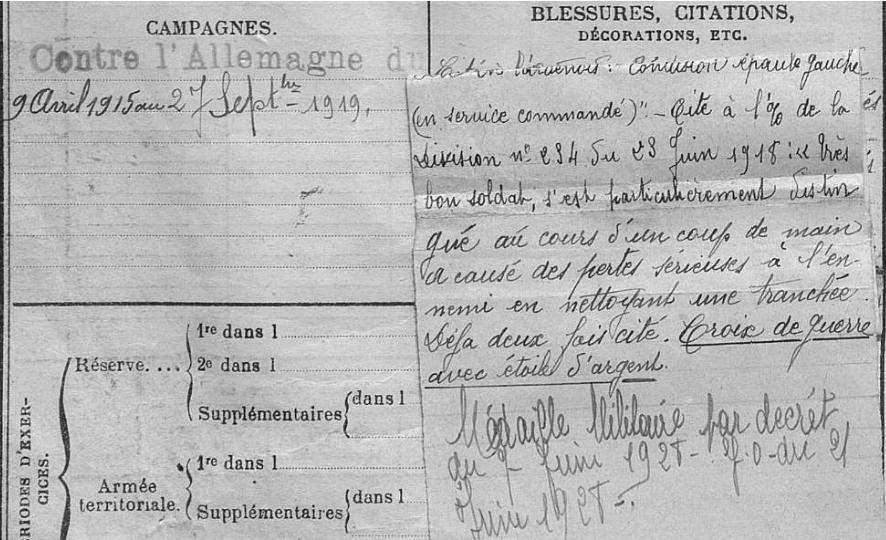 CAMPAGNES.
Contre l'Allemagne du
9 Avril 1915 au 27 Septbre 1919.
BLESSURES, CITATIONS,
DÉCORATIONS, ETC.
: Contusion épaule gauche
(en service commandé)" - Cité à l'% de la
Division no 234 du 23 Juin 1918 : « très
bon soldat, s'est particulièrement distin
gué au cours d'un coup de main
a causé des pertes serieuses à l'en-
nemi en nettoyant une tranchée.
Déja deux fois cité. Croix de Guerre
avec étoile d'argent.
Médaille Militaire par decrêt
du Juin 192 - J.O. du 21
Juin 192
PERIODES D'EXER-
CICES.
Réserve....
1re dans l
2e dans l
Supplémentaires
dans l
Armée
territoriale.
1re dans l
Supplémentaires
dans l